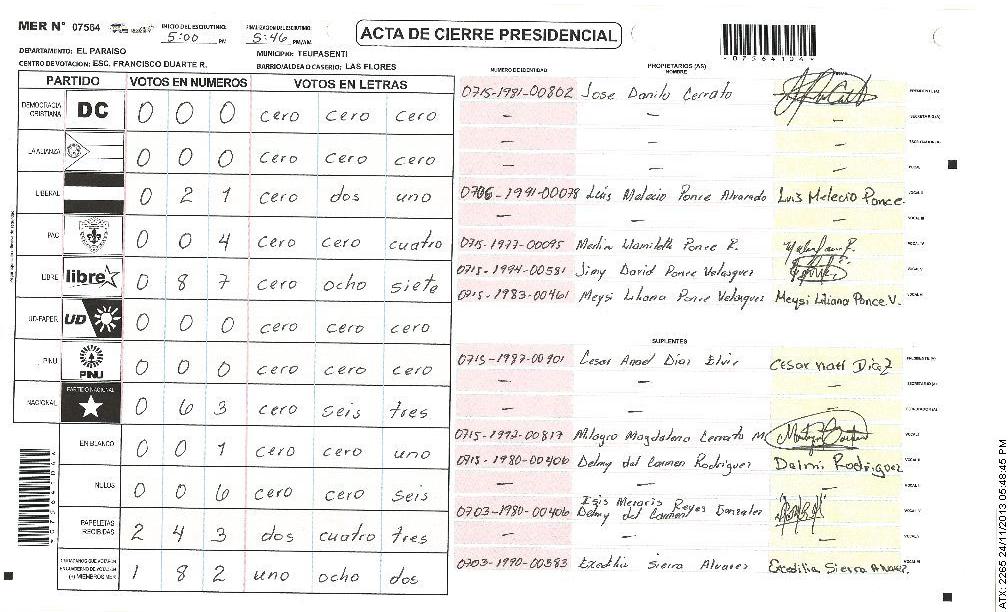 MER N° 07564 INICIO DEL ESCRUTINIO: 5:00 PM FINALIZACION DEL ESCRUTINIO: 5:46 PM/AM
ACTA DE CIERRE PRESIDENCIAL
*07564104*
DEPARTAMENTO: EL PARAISO MUNICIPIO: TEUPASENTI
CENTRO DE VOTACION: ESC. FRANCISCO DUARTE R. BARRIO/ALDEA O CASERIO: LAS FLORES
PARTIDO VOTOS EN NUMEROS VOTOS EN LETRAS
DEMOCRACIA CRISTIANA DC 0 0 0 cero cero cero
LA ALIANZA 0 0 0 cero cero cero
LIBERAL 0 2 1 cero dos uno
PAC 0 0 4 cero cero cuatro
LIBRE libre 0 8 7 cero ocho siete
UD-FAPER UD 0 0 0 cero cero cero
PINU PINU 0 0 0 cero cero cero
NACIONAL PARTIDO NACIONAL 0 6 3 cero seis tres
EN BLANCO 0 0 1 cero cero uno
NULOS 0 0 6 cero cero seis
PAPELETAS RECIBIDAS 2 4 3 dos cuatro tres
CIUDADANOS QUE VOTARON EN CUADERNO DE VOTACION (+) MIEMBROS MER 1 8 2 uno ocho dos
NUMERO DE IDENTIDAD PROPIETARIOS (AS) NOMBRE
0715-1981-00802 Jose Danilo Cerrato PRESIDENTE (A)
— — — SECRETARIO (A)
— — —
— — —
0706-1991-00078 Luis Melecio Ponce Alvarado Luis Melecio Ponce. VOCAL II
— — — VOCAL III
0715-1977-00095 Ponce R. VOCAL IV
0715-1994-00581 Jimy David Ponce Velasquez VOCAL V
0715-1983-00461 Meysi Liliana Ponce Velasquez Meysi Liliana Ponce V.
SUPLENTES
0715-1987-00901 Cesar Diaz Elvir Cesar Diaz PRESIDENTE (A)
— — — SECRETARIO (A)
— — — ESCRUTADOR (A)
0715-1992-00817 Milagro Magdalena Cerrato M. VOCAL I
0715-1980-00406 Delmy del Carmen Rodriguez Delmi Rodriguez
— — — VOCAL III
Isis Reyes Gonzales
0703-1980-00406 Delmy del Carmen
— — —
0703-1990-00383 Exedilia Sierra Alvarez Exedilia Sierra Alvarez.
ATX: 2265 24/11/2013 05:48:45 PM